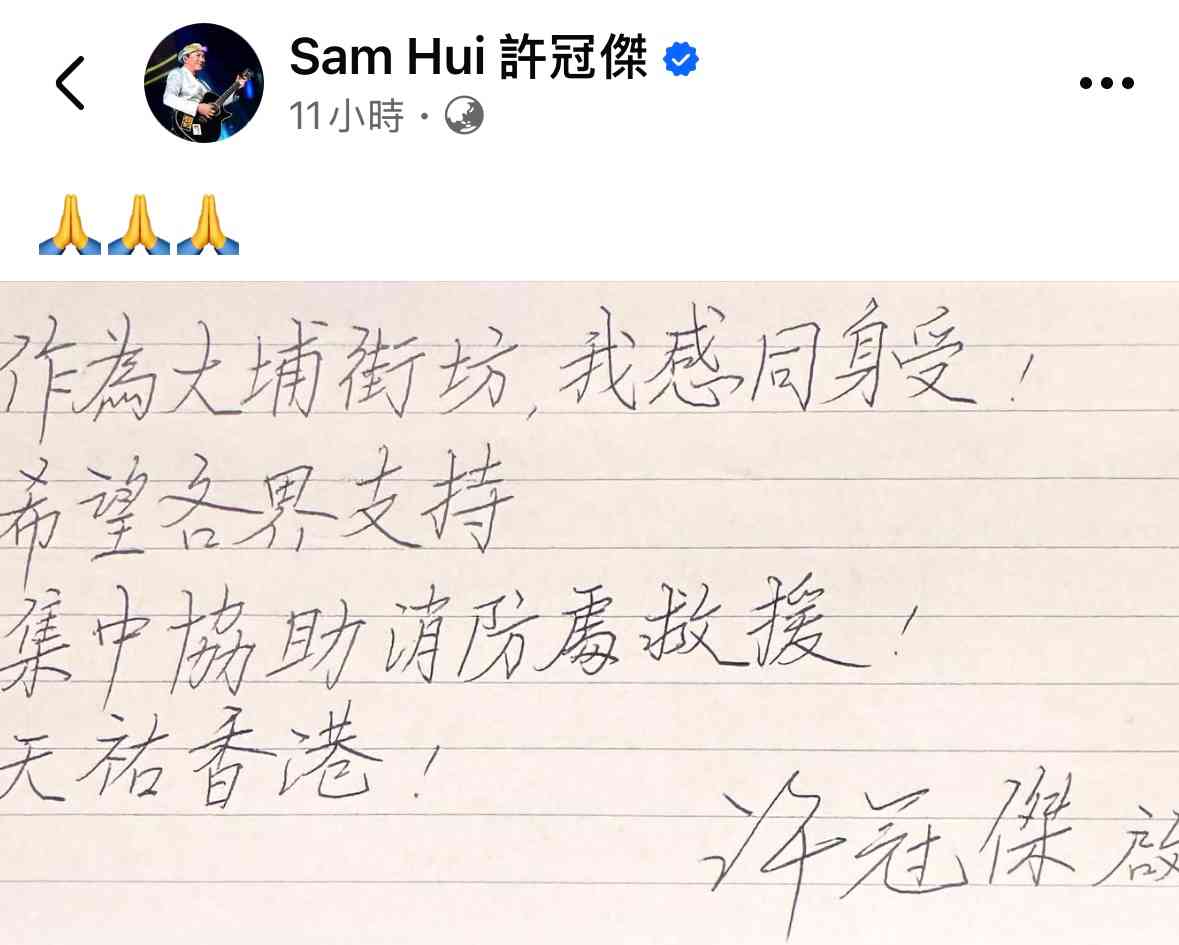 Sam Hui 許冠傑
11小時 ·
作為大埔街坊,我感同身受!
希望各界支持
集中協助消防處救援!
天祐香港!
許冠傑 啟